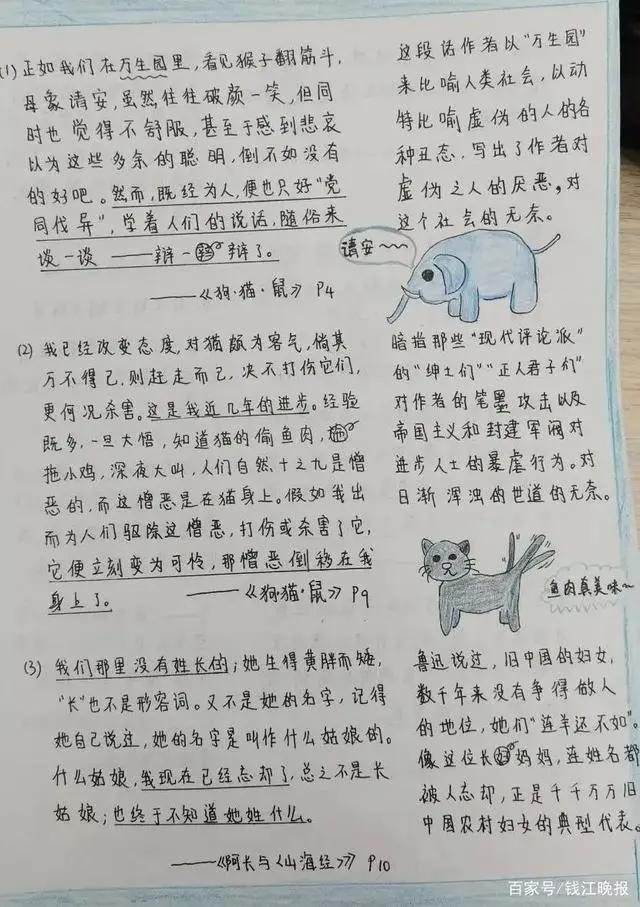 (1) 正如我们在万生园里,看见猴子翻筋斗,
母象请安,虽然往往破颜一笑,但同
时也觉得不舒服,甚至于感到悲哀
以为这些多余的聪明,倒不如没有
的好吧。然而,既经为人,便也只好“党
同伐异”,学着人们的说话,随俗来
谈一谈——辩一辩了。
——《狗·猫·鼠》 P4
这段话作者以“万生园”
来比喻人类社会,以动
特比喻虚伪的人的各
种丑态,写出了作者对
虚伪之人的厌恶,对
这个社会的无奈。
请安~~
(2) 我已经改变态度,对猫颇为客气,倘其
万不得已,则赶走而已,决不打伤它们,
更何况杀害。这是我近几年的进步。经验
既多,一旦大悟,知道猫的偷鱼肉,
拖小鸡,深夜大叫,人们自然十之九是憎
恶的,而这憎恶是在猫身上。假如我出
而为人们驱除这憎恶,打伤或杀害了它,
它便立刻变为可怜,那憎恶倒移在我
身上了。
——《狗·猫·鼠》 P9
暗指那些“现代评论派”
的“绅士们”“正人君子们”
对作者的笔墨攻击以及
帝国主义和封建军阀对
进步人士的暴虐行为。对
日渐浑浊的世道的无奈。
鱼肉真美味~
(3) 我们那里没有姓长的;她生得黄胖而矮,
“长”也不是形容词。又不是她的名字,记得
她自己说过,她的名字是叫作什么姑娘的。
什么姑娘,我现在已经忘却了,总之不是长
姑娘;也终于不知道她姓什么。
——《阿长与《山海经》》 P10
鲁迅说过,旧中国的妇女,
数千年来没有争得做人
的地位,她们“连羊还不如”。
像这位长妈妈,连姓名都
被人忘却,正是千千万万旧
中国农村妇女的典型代表。
百家号/钱江晚报